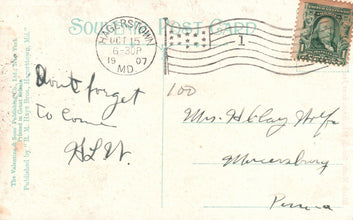 SOUVENIR POST CARD
HAGERSTOWN
OCT 15
6-30P
1907
MD.
1
The Valentine & Sons Publishing Co., Ltd., New York
Printed in Great Britain
Published by "R. M. Hays Bros., Hagerstown, Md."
100
Don't forget
to come
H.L.W.
Mrs. H Clay
Mercersburg
Penna